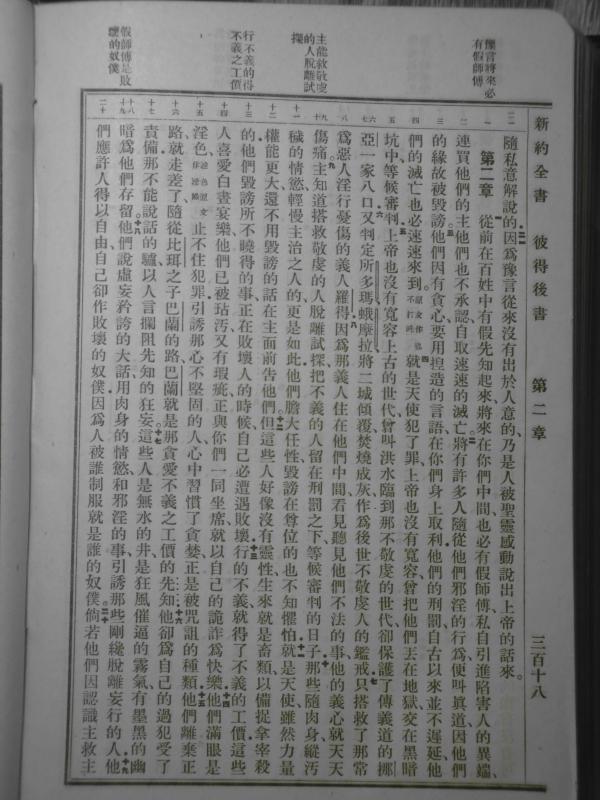 豫言將來必
有假師傅
主能救敬虔
的人脫離試
探
行不義的得
不義之工價
假師傅是敗
壞的奴僕
新約全書 彼得後書 第二章 三百十八
隨私意解說的因爲豫言從來沒有出於人意的乃是人被聖靈感動說出上帝的話來。
第二章 從前在百姓中有假先知起來將來在你們中間也必有假師傅私自引進陷害人的異端、
連買他們的主他們也不承認自取速速的滅亡將有許多人隨從他們邪淫的行爲便叫眞道因他們
的緣故被毀謗他們因有貪心要用揑造的言語在你們身上取利他們的刑罰自古以來並不遲延他
們的滅亡也必速速來到。就是天使犯了罪上帝也沒有寬容曾把他們丟在地獄交在黑暗
坑中等候審判上帝也沒有寬容上古的世代曾叫洪水臨到那不敬虔的世代卻保護了傳義道的挪
亞一家八口又判定所多瑪蛾摩拉將二城傾覆焚燒成灰作爲後世不敬虔人的鑑戒只搭救了那常
爲惡人淫行憂傷的義人羅得因爲那義人住在他們中間看見聽見他們不法的事他的義心就天天
傷痛主知道搭救敬虔的人脫離試探把不義的人留在刑罰之下等候審判的日子那些隨肉身縱汚
穢的情慾輕慢主治之人的更是如此他們膽大任性毀謗在尊位的也不知懼怕就是天使雖然力量
權能更大還不用毀謗的話在主面前告他們但這些人好像沒有靈性生來就是畜類以備捉拿宰殺
的他們毀謗所不曉得的事正在敗壞人的時候自己必遭遇敗壞行的不義就得了不義的工價這些
人喜愛白晝宴樂他們已被玷汚又有瑕疵正與你們一同坐席就以自己的詭詐爲快樂他們滿眼是
淫色止不住犯罪引誘那心不堅固的人心中習慣了貪婪正是被咒詛的種類他們離棄正
路就走差了隨從比珥之子巴蘭的路巴蘭就是那貪愛不義之工價的先知他卻爲自己的過犯受了
責備那不能說話的驢以人言攔阻先知的狂妄這些人是無水的井是狂風催逼的霧氣有墨黑的幽
暗爲他們存留他們說虛妄矜誇的大話用肉身的情慾和邪淫的事引誘那些剛纔脫離妄行的人他
們應許人得以自由自己卻作敗壞的奴僕因爲人被誰制服就是誰的奴僕倘若他們因認識主救主